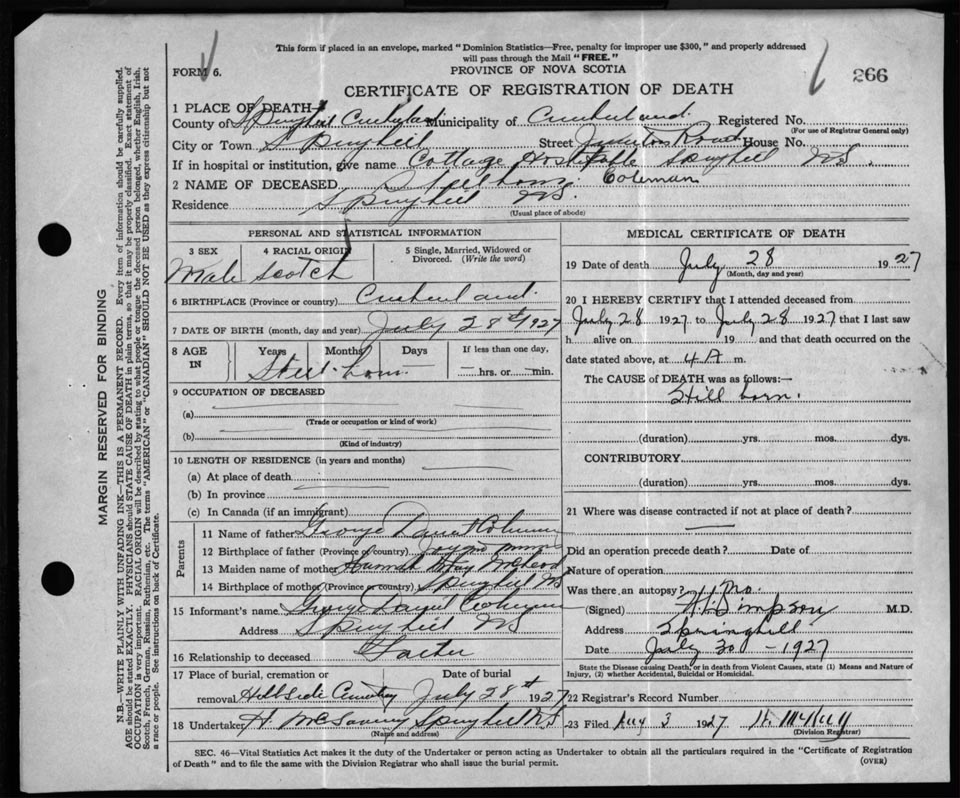 This form if placed in an envelope, marked "Dominion Statistics—Free, penalty for improper use $300," and properly addressed
will pass through the Mail "FREE."
FORM 6.
PROVINCE OF NOVA SCOTIA
266
CERTIFICATE OF REGISTRATION OF DEATH
1 PLACE OF DEATH
County of Municipality of Cumberland. Registered No.
(For use of Registrar General only)
City or Town Springhill Street Junction Road House No.
If in hospital or institution, give name Cottage Springhill NS.
2 NAME OF DECEASED, Stillborn Coleman
Residence Springhill NS.
(Usual place of abode)
PERSONAL AND STATISTICAL INFORMATION
3 SEX 4 RACIAL ORIGIN 5 Single, Married, Widowed or Divorced. (Write the word)
Male Scotch
6 BIRTHPLACE (Province or country) Cumberland.
7 DATE OF BIRTH (month, day and year) July 28th 1927
8 AGE IN Years Months Days If less than one day,
Still-born. — hrs. or — min.
9 OCCUPATION OF DECEASED
(a)
(Trade or occupation or kind of work)
(b)
(Kind of industry)
10 LENGTH OF RESIDENCE (in years and months)
(a) At place of death
(b) In province
(c) In Canada (if an immigrant)
Parents
11 Name of father George Daniel Coleman
12 Birthplace of father (Province or country)
13 Maiden name of mother Hannah McLeod
14 Birthplace of mother (Province or country) Springhill NS
15 Informant's name George Daniel Coleman
Address Springhill NS
16 Relationship to deceased Father
17 Place of burial, cremation or removal Hillside Cemetery Date of burial July 28th 1927
18 Undertaker H. Springhill NS
(Name and address)
MEDICAL CERTIFICATE OF DEATH
19 Date of death July 28 1927
(Month, day and year)
20 I HEREBY CERTIFY that I attended deceased from
July 28 1927 to July 28 1927 that I last saw
h alive on 19 and that death occurred on the
date stated above, at 4 A m.
The CAUSE of DEATH was as follows:—
Still born.
(duration) yrs. mos. dys.
CONTRIBUTORY
(duration) yrs. mos. dys.
21 Where was disease contracted if not at place of death?
Did an operation precede death? Date of
Nature of operation
Was there an autopsy? No.
(Signed) Simpson M.D.
Address Springhill
Date July 30 - 1927
State the Disease causing Death, or in death from Violent Causes, state (1) Means and Nature of
Injury, (2) whether Accidental, Suicidal or Homicidal.
22 Registrar's Record Number
23 Filed Aug 3 1927
(Division Registrar)
SEC. 46—Vital Statistics Act makes it the duty of the Undertaker or person acting as Undertaker to obtain all the particulars required in the "Certificate of Registration
of Death" and to file the same with the Division Registrar who shall issue the burial permit.
(OVER)
MARGIN RESERVED FOR BINDING
N.B.—WRITE PLAINLY WITH UNFADING INK—THIS IS A PERMANENT RECORD. Every item of information should be carefully supplied.
AGE should be stated EXACTLY. PHYSICIANS should STATE CAUSE OF DEATH in plain terms, so that it may be properly classified. Exact statement of
OCCUPATION is very important. RACIAL ORIGIN will be described by stating to what people or tongue the deceased person belonged, whether English, Irish,
Scotch, French, German, Russian, Ruthenian, etc. The terms "AMERICAN" or "CANADIAN" SHOULD NOT BE USED as they express citizenship but not
a race or people. See instructions on back of Certificate.